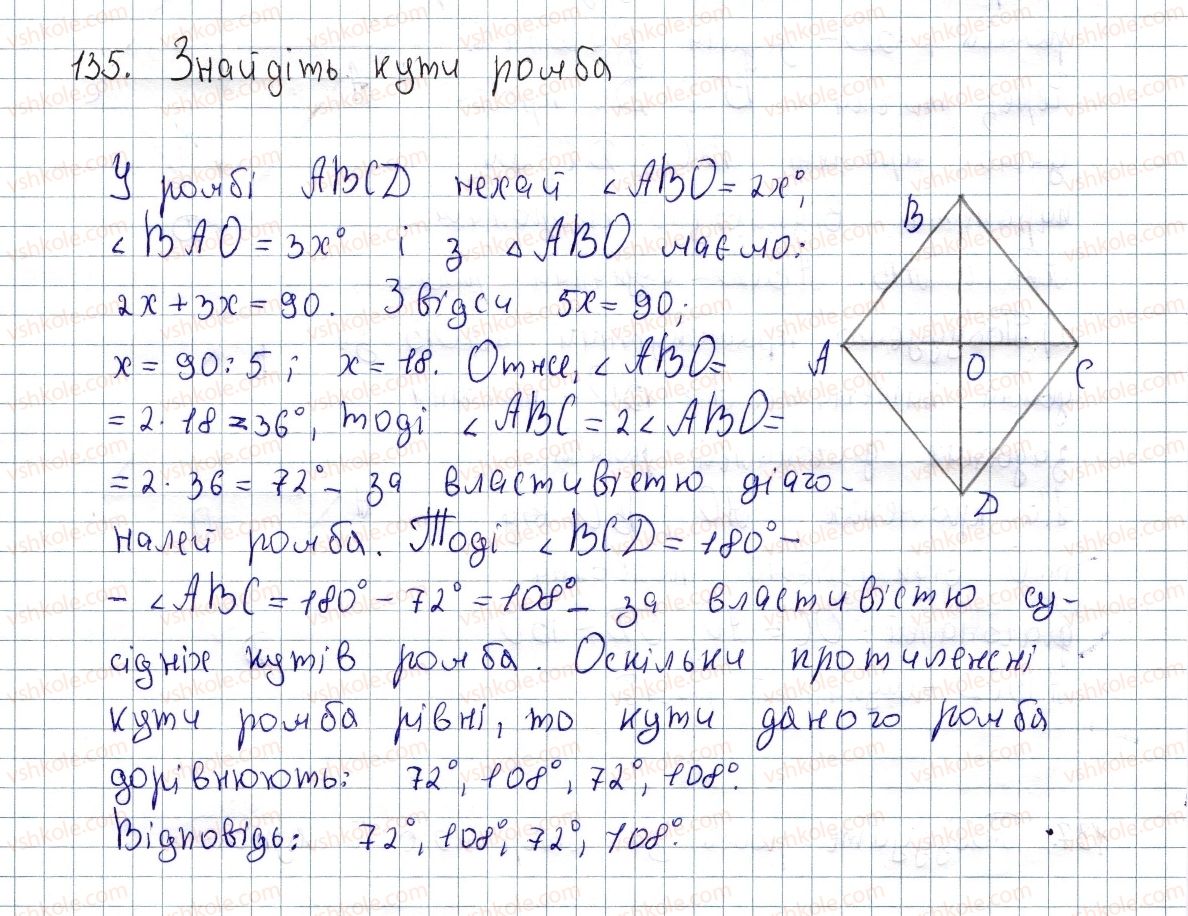 135. Знайдіть кути ромба
У ромбі ABCD нехай ∠ABO = 2x°,
∠BAO = 3x° і з △ABO маємо:
2x + 3x = 90. Звідси 5x = 90;
x = 90 : 5; x = 18. Отже, ∠ABO =
= 2 · 18 = 36°, тоді ∠ABC = 2∠ABO =
= 2 · 36 = 72° - за властивістю діаго-
налей ромба. Тоді ∠BCD = 180° -
- ∠ABC = 180° - 72° = 108° - за властивістю су-
сідніх кутів ромба. Оскільки протилежні
кути ромба рівні, то кути даного ромба
дорівнюють: 72°, 108°, 72°, 108°.
Відповідь: 72°, 108°, 72°, 108°.
B
A
O
C
D
vshkole.com